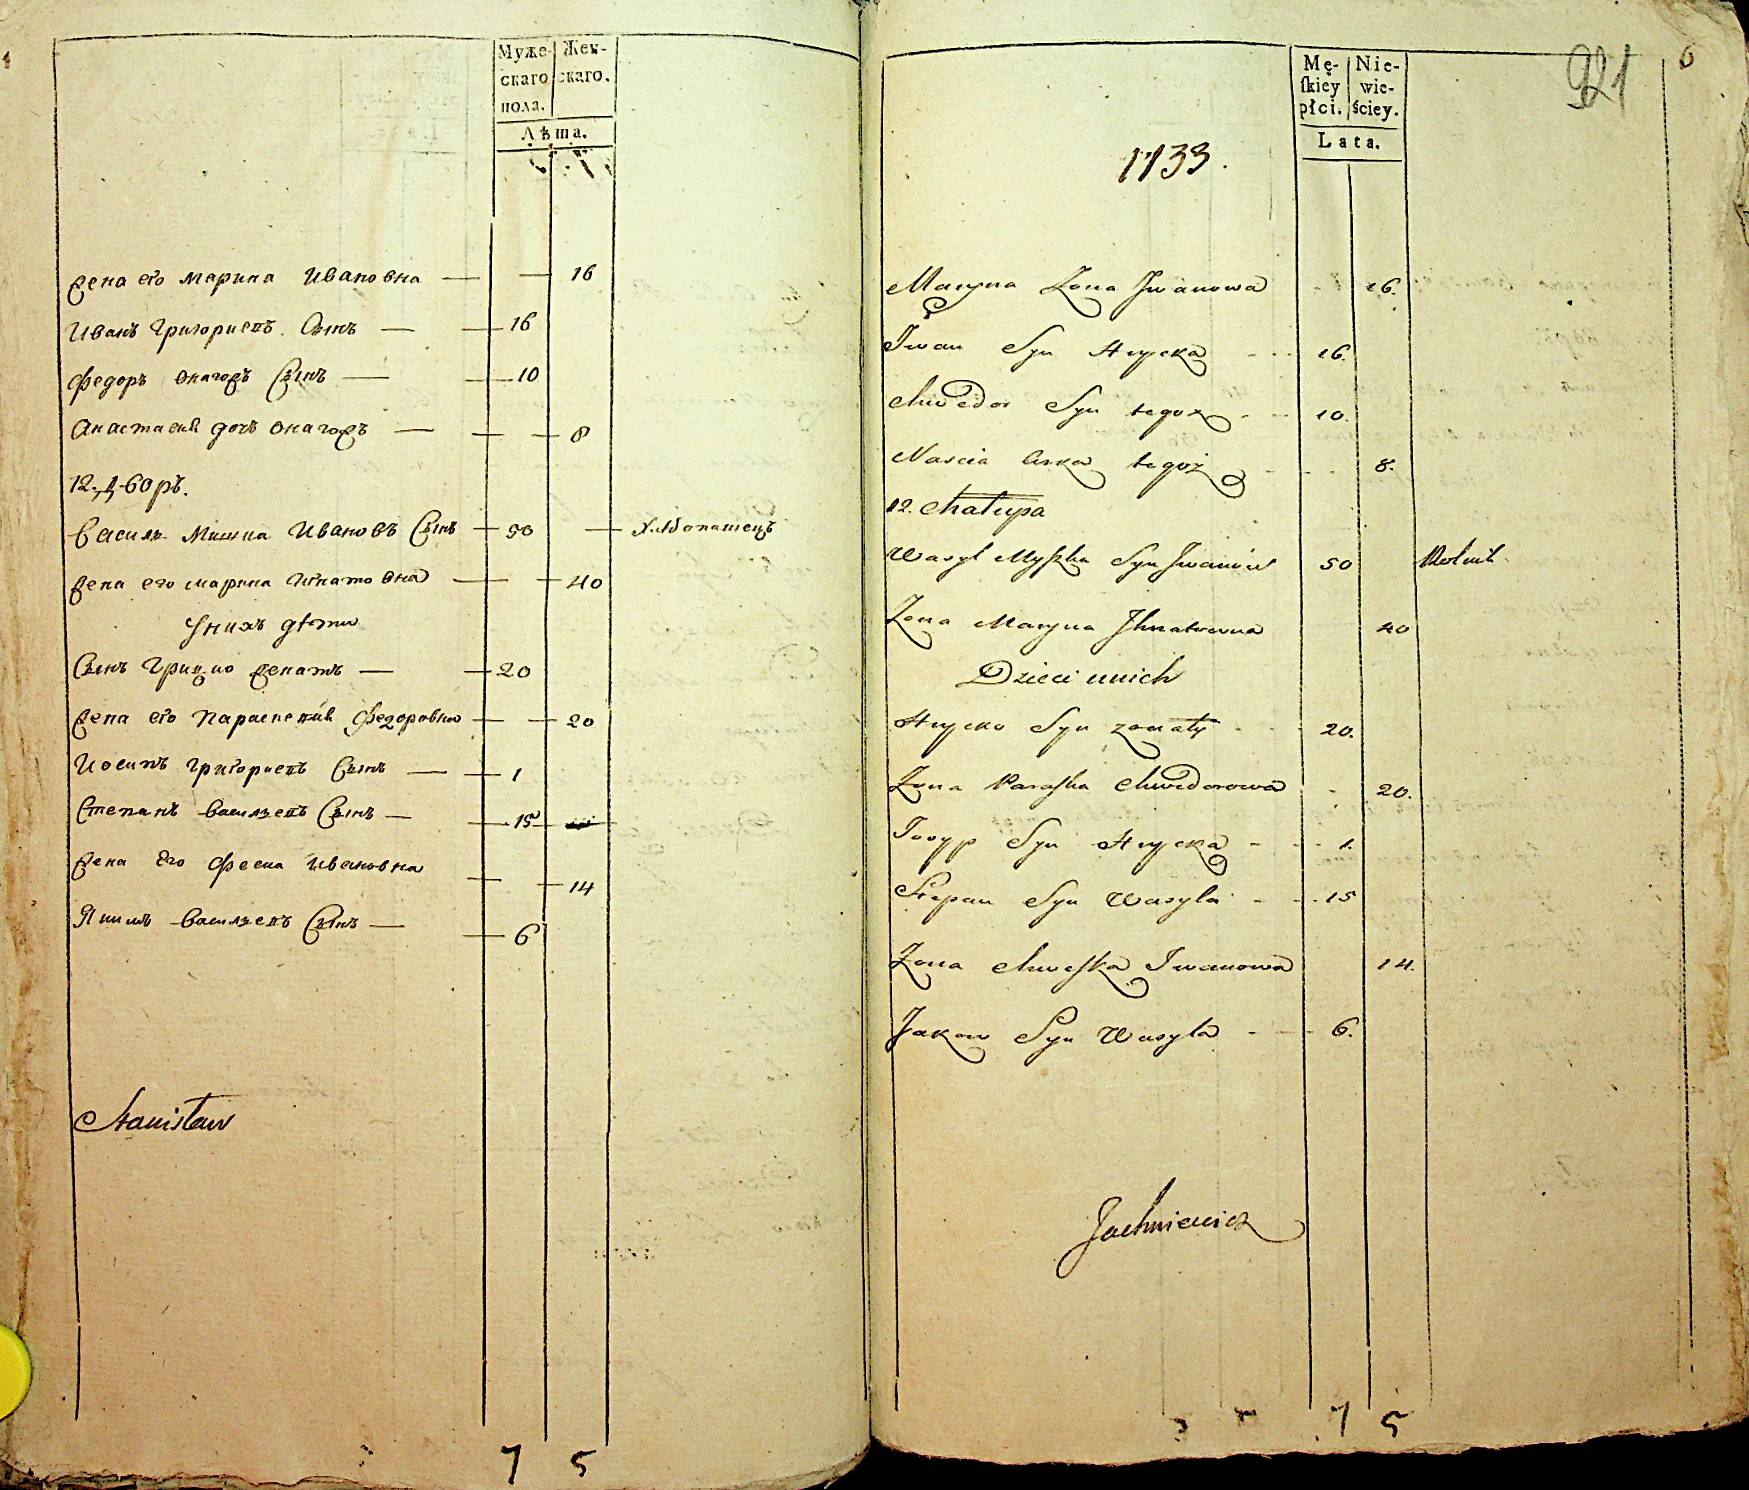 Муже-
скаго
пола.
Жен-
скаго.
Лѣта.
жена его марина Ивановна 16
Иванъ Григориевъ Сынъ 16
Федоръ онагожъ Сынъ 10
Анастасия дочь онагожъ 8
12. Дворъ.
Василь Мишка Ивановъ Сынъ 50 Хлѣбопашецъ
жена его марина Игнатовна 40
У нихъ дѣти
Сынъ Грицко женатъ 20
жена его Параскевия Федоровна 20
Иосипъ Григориевъ Сынъ 1
Степанъ Васильевъ Сынъ 15
жена его Феска Ивановна 14
Яким Васильевъ Сынъ 6
Stanisław
7 5
921
6
Mę-
skiey
płci.
Nie-
wie-
ściey.
Lata.
1133.
Maryna Zona Jwanowa 16.
Jwan Syn Hrycka 16.
Chwedor Syn tegoż 10.
Nascia Corka tegoż 8.
12. Chałupa
Wasyl Myszka Syn Jwanów 50 Rolnik
Zona Maryna Jhnatowna 40
Dzieci u nich
Hrycko Syn zonaty 20.
Zona Paraska Chwedorowa 20.
Josyp Syn Hrycka 1.
Stepan Syn Wasyla 15
Zona Chweska Iwanowa 14.
Jakow Syn Wasyla 6.
Jachniewicz
7 5